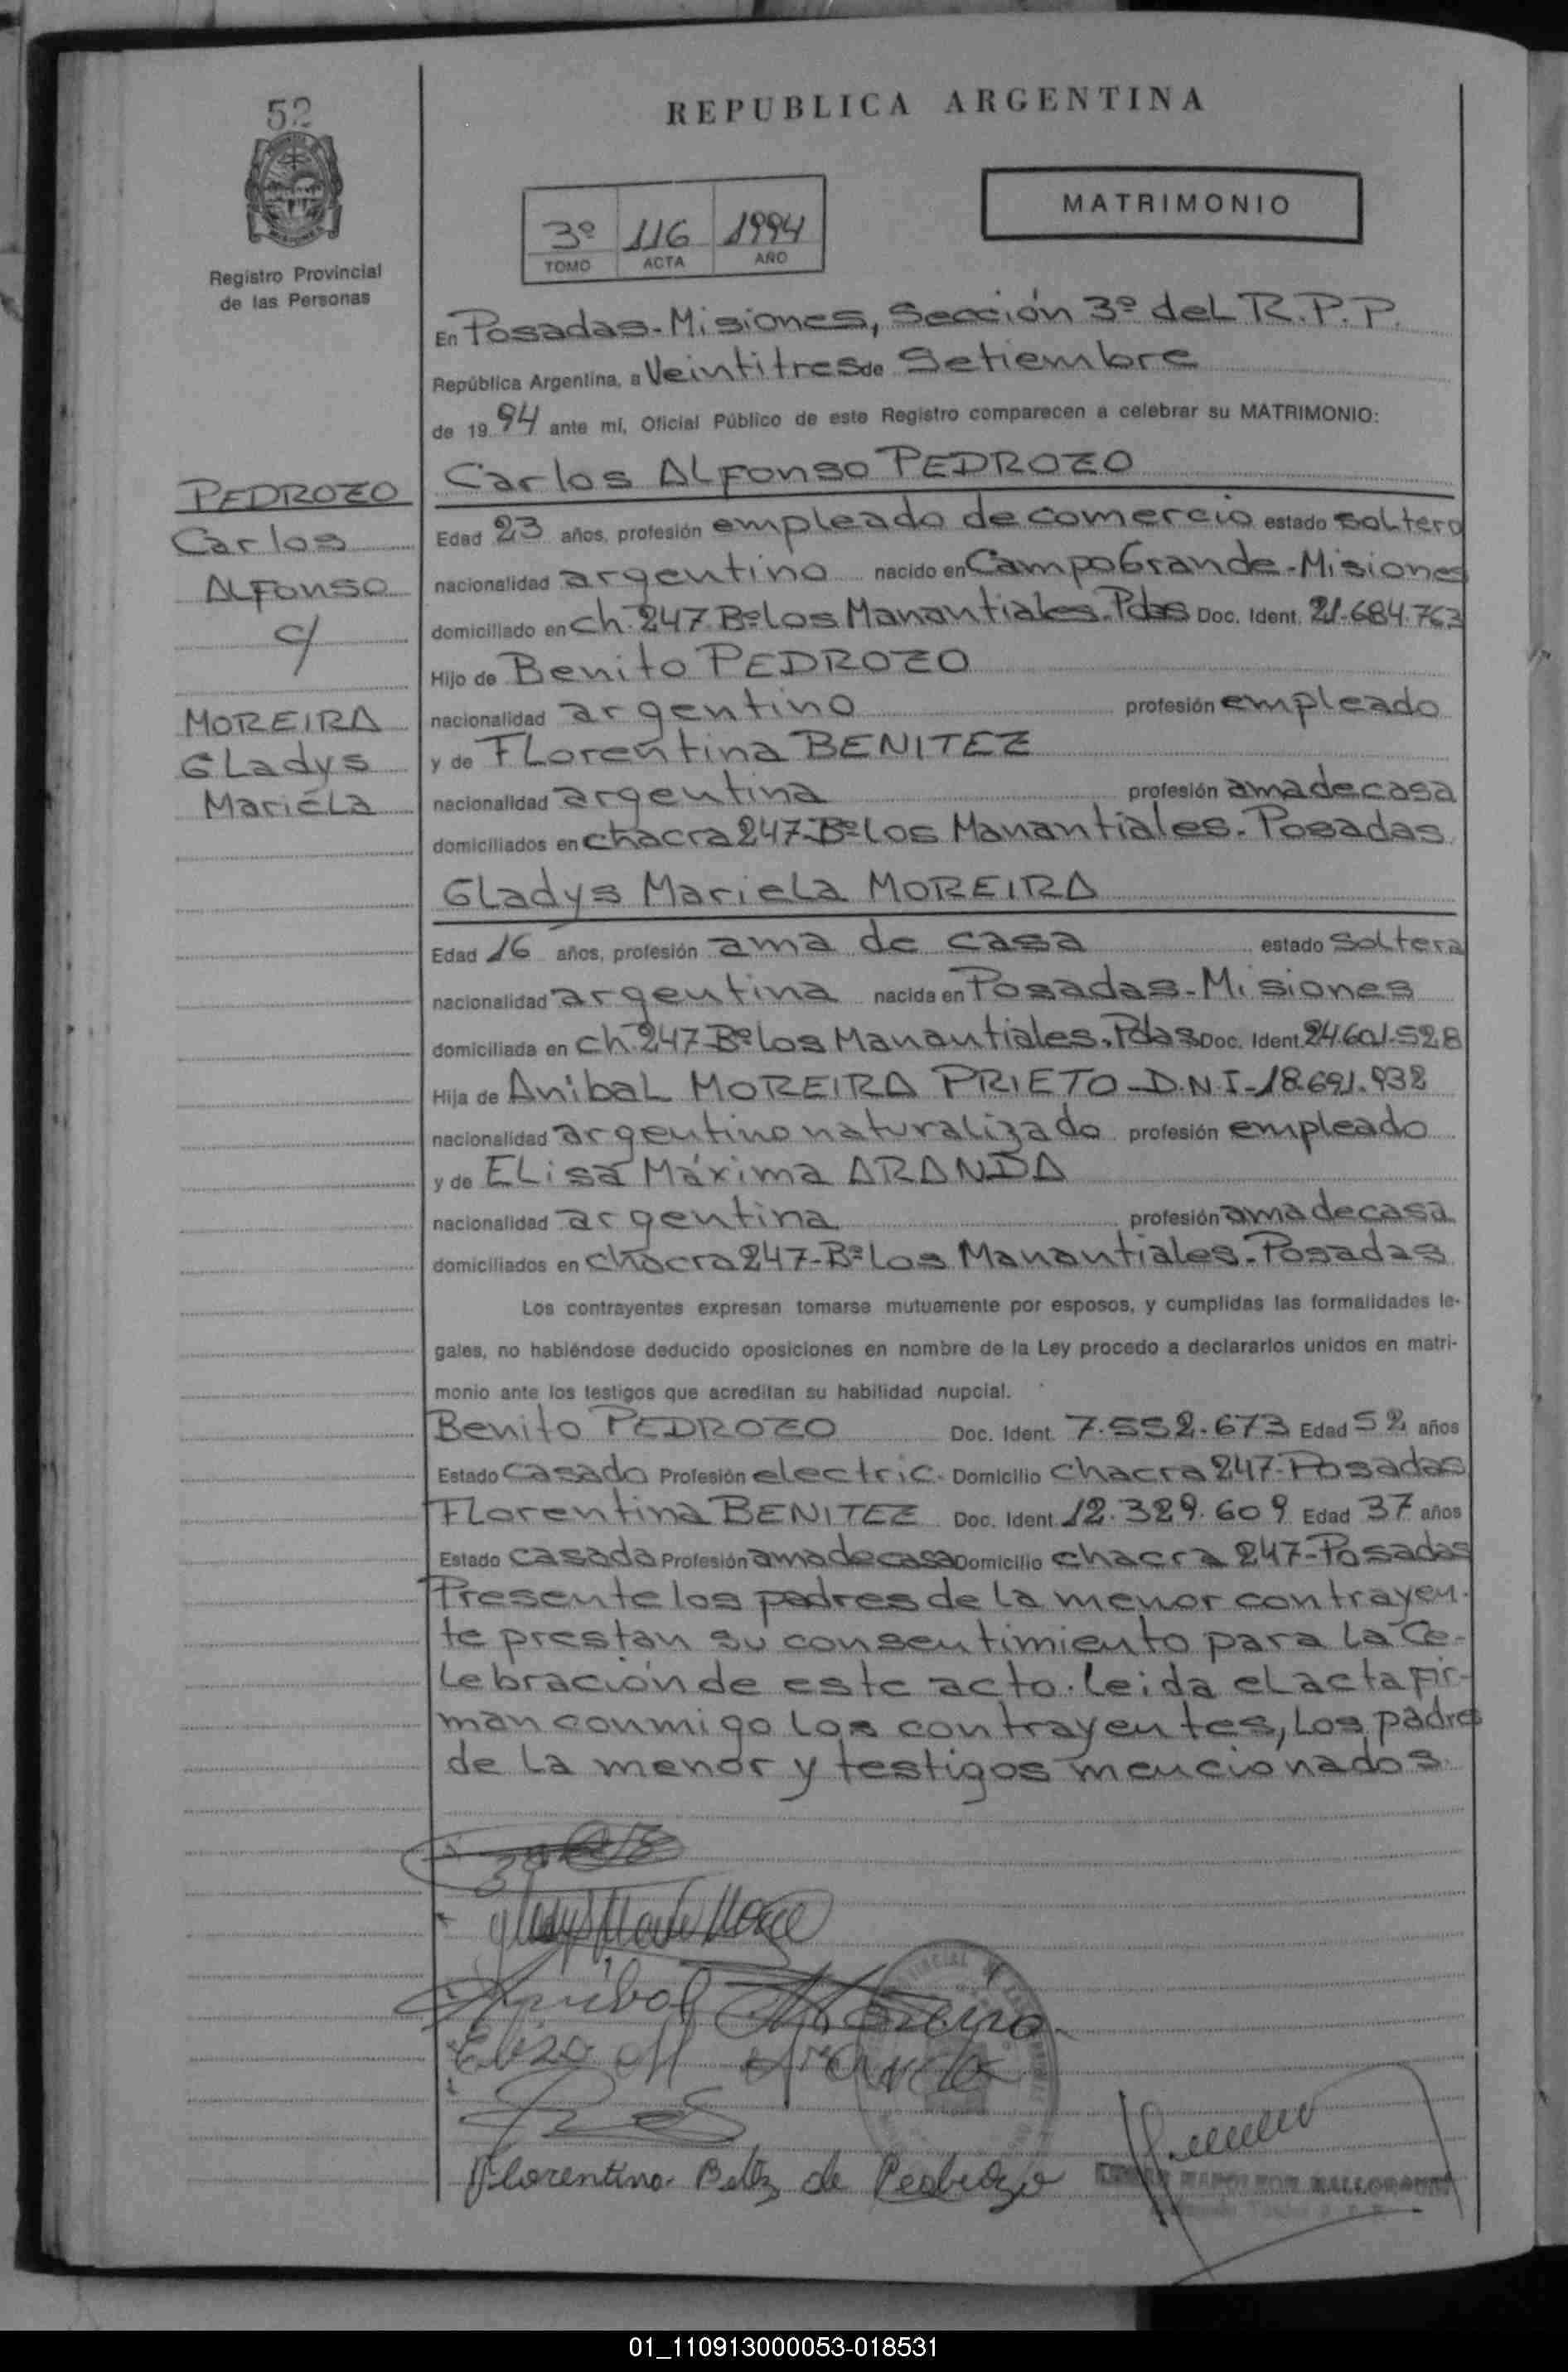 52
REPUBLICA ARGENTINA
MATRIMONIO
3º 116 1994
TOMO ACTA AÑO
Registro Provincial
de las Personas
En Posadas-Misiones, Sección 3º del R.P.P.
República Argentina, a Veintitres de Setiembre
de 1994 ante mí, Oficial Público de este Registro comparecen a celebrar su MATRIMONIO:
PEDROZO
Carlos
Alfonso
c/
MOREIRA
Gladys
Mariela
Carlos Alfonso PEDROZO
Edad 23 años, profesión empleado de comercio estado soltero
nacionalidad argentino nacido en Campo Grande-Misiones
domiciliado en ch. 247 Bº Los Manantiales. Pdas Doc. Ident. 21.684.763
Hijo de Benito PEDROZO
nacionalidad argentino profesión empleado
y de Florentina BENITEZ
nacionalidad argentina profesión ama de casa
domiciliados en chacra 247-Bº Los Manantiales. Posadas
Gladys Mariela MOREIRA
Edad 16 años, profesión ama de casa estado soltera
nacionalidad argentina nacida en Posadas-Misiones
domiciliada en ch. 247 Bº Los Manantiales. Pdas Doc. Ident. 24.601.528
Hija de Anibal MOREIRA PRIETO-D.N.I-18.691.932
nacionalidad argentino naturalizado profesión empleado
y de Elisa Máxima ARANDA
nacionalidad argentina profesión ama de casa
domiciliados en chacra 247-Bº Los Manantiales. Posadas
Los contrayentes expresan tomarse mutuamente por esposos, y cumplidas las formalidades le-
gales, no habiéndose deducido oposiciones en nombre de la Ley procedo a declararlos unidos en matri-
monio ante los testigos que acreditan su habilidad nupcial.
Benito PEDROZO Doc. Ident. 7.552.673 Edad 52 años
Estado casado Profesión electric. Domicilio chacra 247-Posadas
Florentina BENITEZ Doc. Ident. 12.329.609 Edad 37 años
Estado casada Profesión ama de casa Domicilio chacra 247-Posadas
Presente los padres de la menor contrayen-
te prestan su consentimiento para la ce-
lebración de este acto. leida el acta fir-
man conmigo los contrayentes, los padres
de la menor y testigos mencionados
Anibal Moreira
Elisa M Aranda
Florentina Betez de Pedrozo
01_110913000053-018531